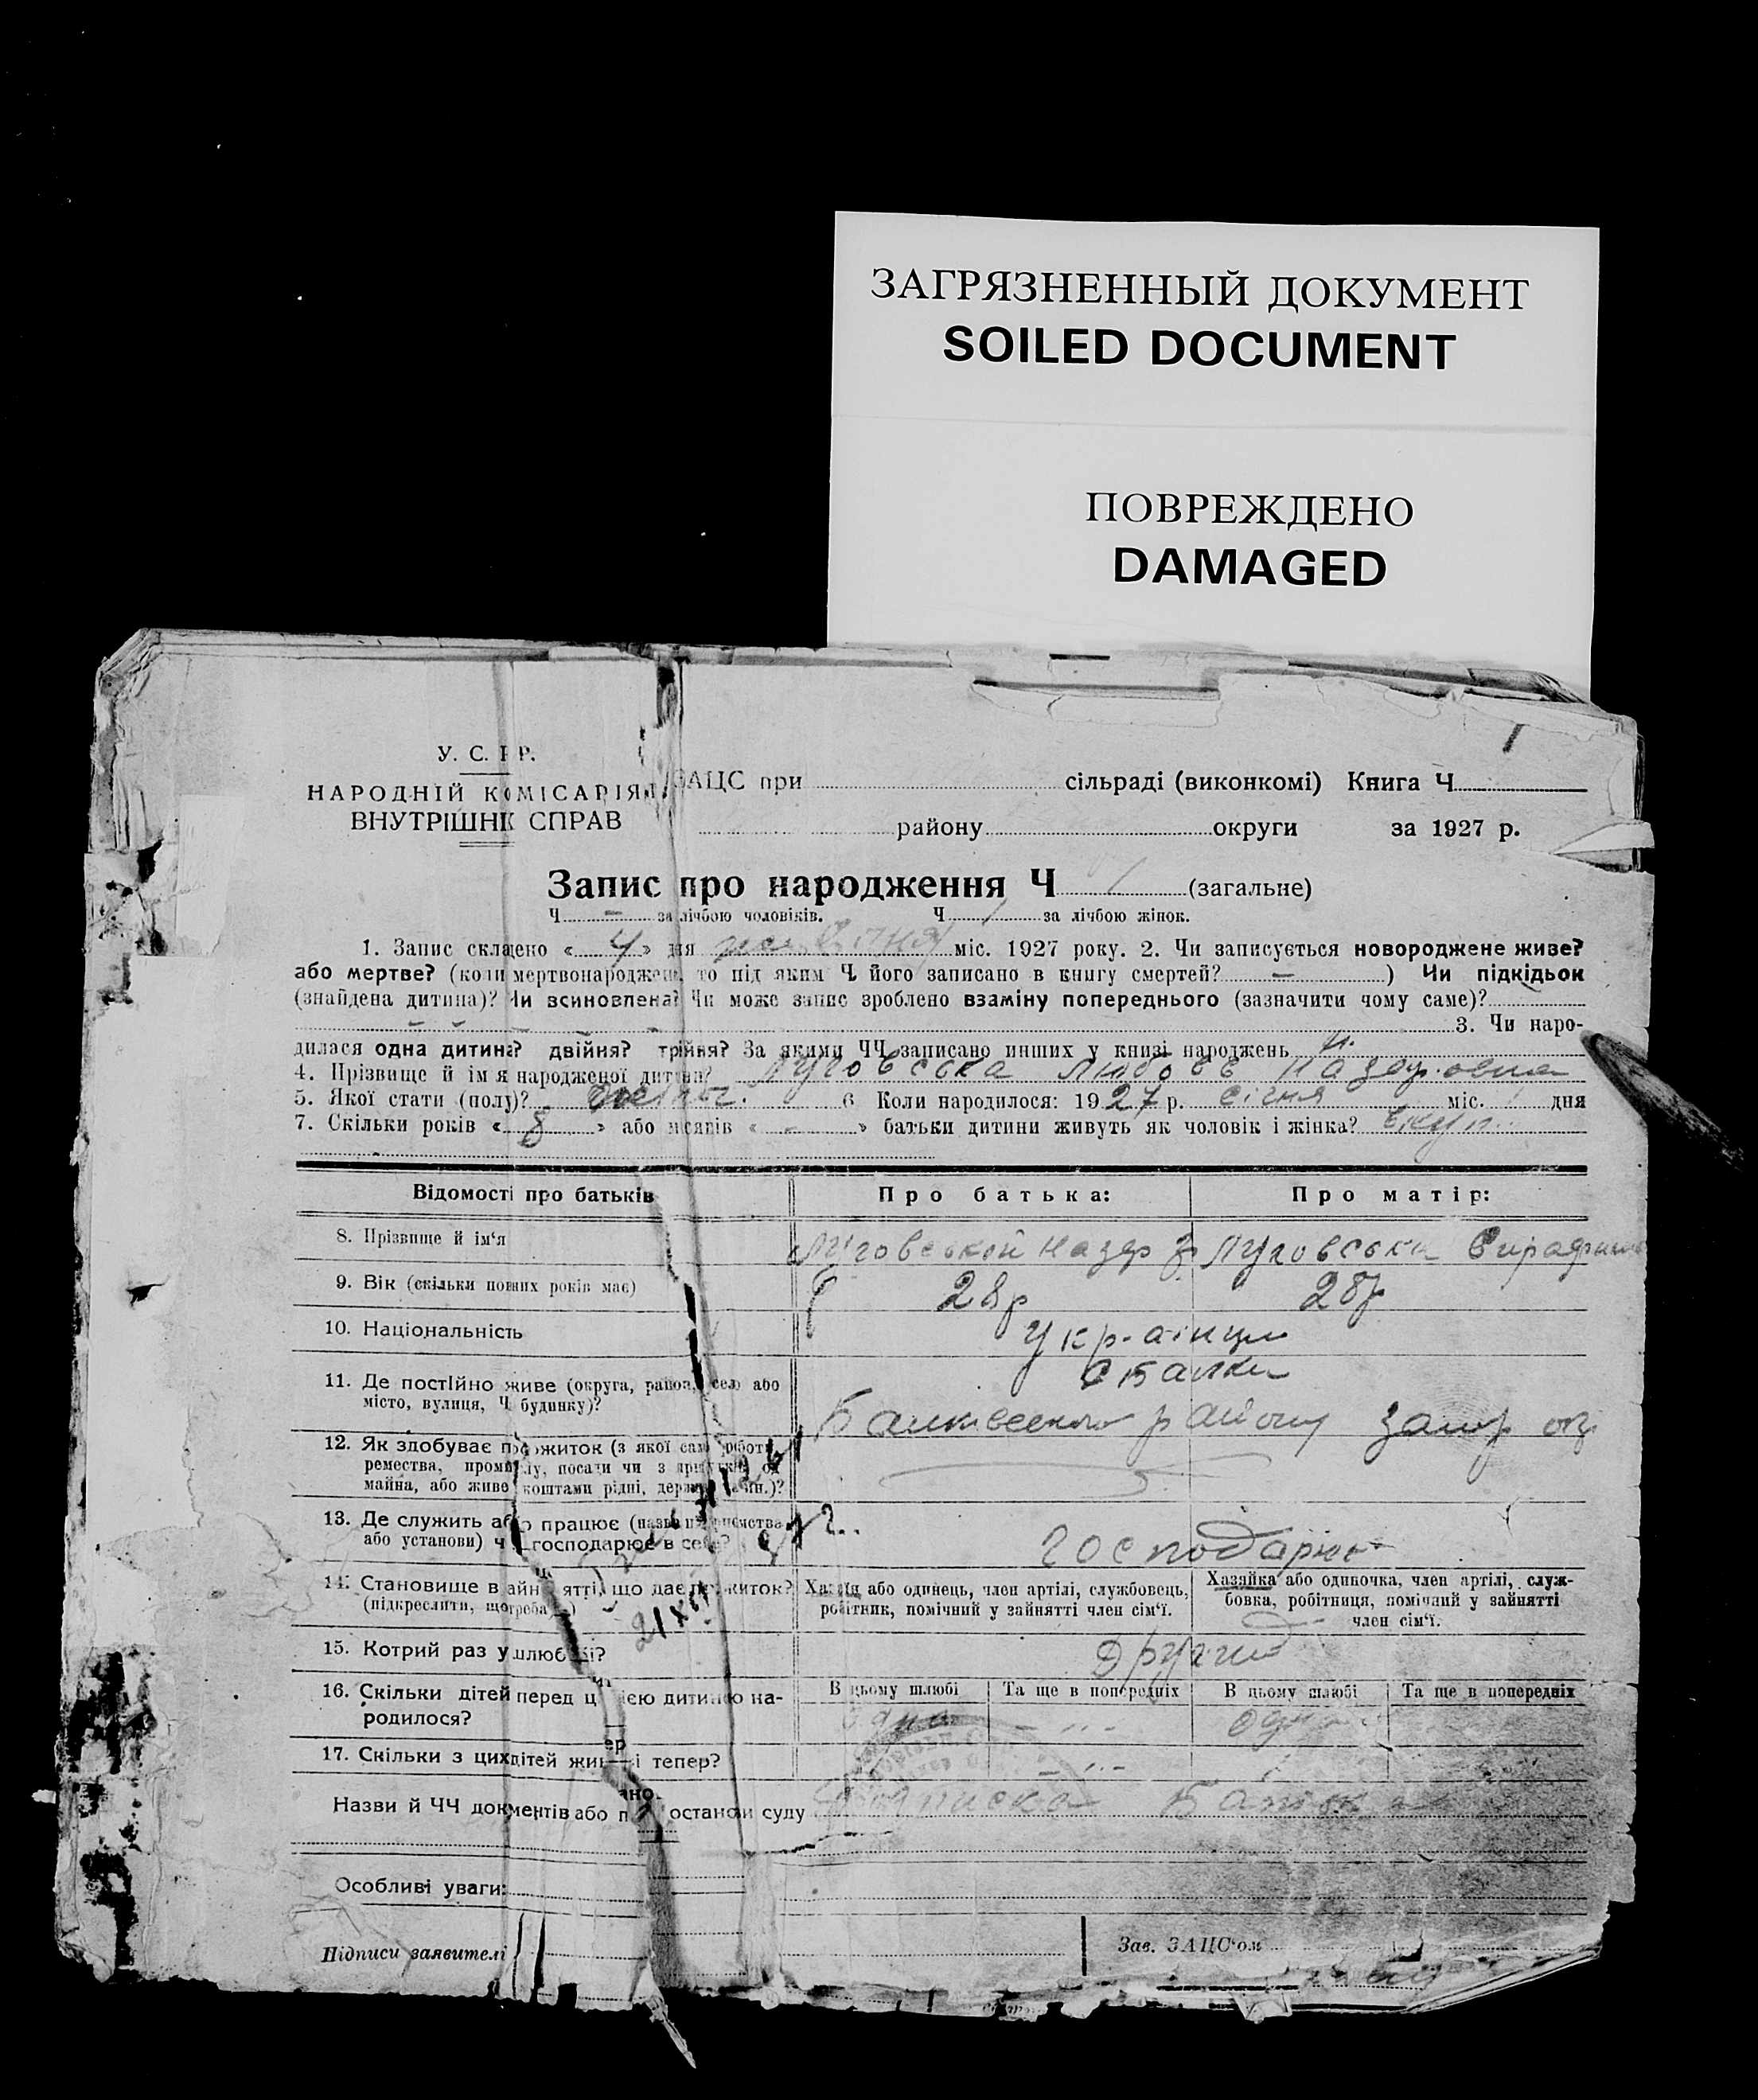 ЗАГРЯЗНЕННЫЙ ДОКУМЕНТ
SOILED DOCUMENT
ПОВРЕЖДЕНО
DAMAGED
1
У. С. Р Р.
ЗАЦС при сільраді (виконкомі) Книга Ч
НАРОДНІЙ КОМІСАРІЯТ
ВНУТРІШНІХ СПРАВ
району округи за 1927 р.
Запис про народження Ч 1 (загальне)
Ч — за лічбою чоловіків. Ч 1 за лічбою жінок.
1. Запис складено « 4 » дня міс. 1927 року. 2. Чи записується новороджене живе?
або мертве? (коли мертвонароджене, то під яким Ч його записано в книгу смертей? — ) Чи підкідьок
(знайдена дитина)? Чи всиновлена? Чи може запис зроблено взаміну попереднього (зазначити чому саме)?
3. Чи наро-
дилася одна дитина? двійня? трійня? За якими ЧЧ записано инших у книзі народжень
4. Прізвище й ім'я народженої дитини? Луговська Любовь Назаровна
5. Якої стати (полу)? 6 Коли народилося: 1927 р. січня міс. 1 дня
7. Скільки років « 8 » або місяців « - » батьки дитини живуть як чоловік і жінка?
Відомості про батьків Про батька: Про матір:
8. Прізвище й ім'я Луговськой Назар Луговська
9. Вік (скільки повних років має) 28р 28р
10. Національність Українці
11. Де постійно живе (округа, район, село або
місто, вулиця, Ч будинку)? району Запор ок
12. Як здобуває прожиток (з якої саме роботи,
ремества, промислу, посади чи з прибутків од
майна, або живе коштами рідні, держави й ин.)?
13. Де служить або працює (назва підприємства
або установи) чи господарює в себе? господарює
14. Становище в зайнятті, що дає прожиток? Хазяїн або одинець, член артілі, службовець, Хазяйка або одиночка, член артілі, служ-
(підкреслити, що треба) робітник, помічний у зайнятті член сім'ї. бовка, робітниця, помічний у зайнятті
член сім'ї.
15. Котрий раз у шлюбі? другий
16. Скільки дітей перед цією дитиною на- В цьому шлюбі Та ще в попередніх В цьому шлюбі Та ще в попередніх
родилося? одна одна
17. Скільки з цих дітей живі тепер?
Назви й ЧЧ документів або постанови суду
Особливі уваги:
Підписи заявителі Зав. ЗАЦС'ом